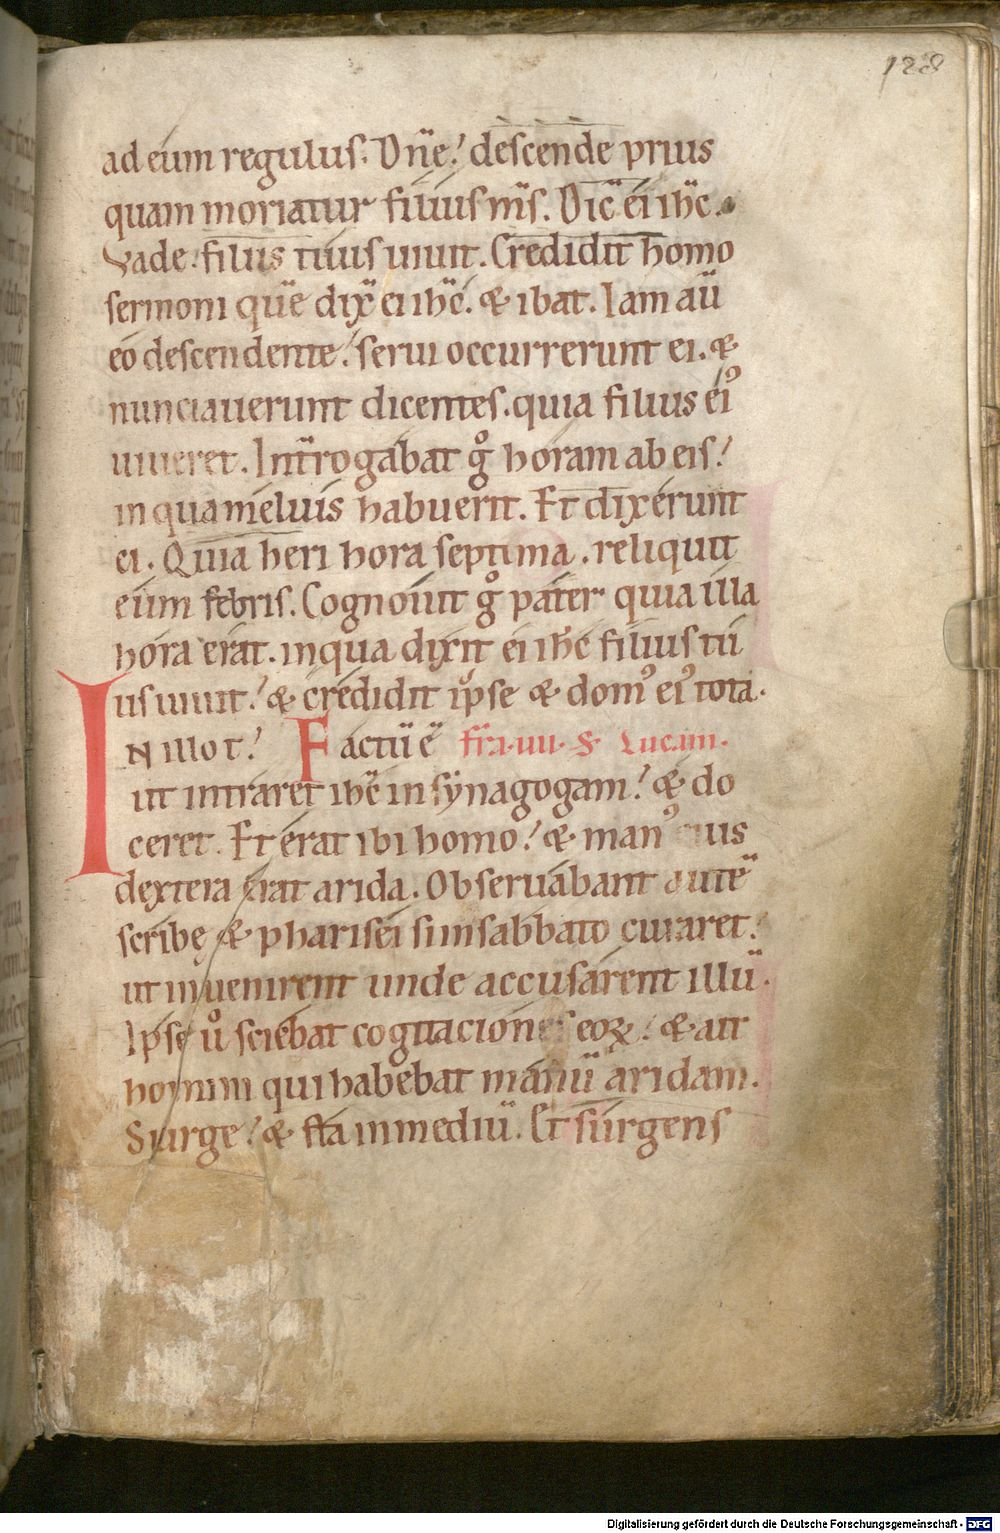 128
ad eum regulus. Dn̄e! descende prius
quam moriatur filius m̄s. Dic̄ ei ih̄c.
Vade! filius tuus uiuit. Credidit homo
sermoni quē dix̄ ei ih̄c. & ibat. Iam aū
eo descendente! serui occurrerunt ei. &
nunciauerunt dicentes. quia filius eiꝰ
uiueret. Int̄rogabat gͦ horam ab eis!
in qua melius habuerit. Et dixerunt
ei. Quia heri hora septima. reliquit
eum febris. Cognouit gͦ pater quia illa
hora erat. in qua dixit ei ih̄c filius tu
us uiuit! & credidit ip̄se & domꝰ eiꝰ tota.
IN illo t̄! Factū ē fr̄a. uii. S. Lucam.
ut intraret ih̄c in synagogam! & do
ceret. Et erat ibi homo! & manꝰ eius
dextera erat arida. Obseruabant autē
scribę & pharisei si in sabbato curaret!
ut inuenirent unde accusarent illū.
Ipse uͦ sciebat cogitaciones eoꝝ! & ait
homini qui habebat manū aridam.
Surge! & sta in mediū. Et surgens
Digitalisierung gefördert durch die Deutsche Forschungsgemeinschaft - DFG